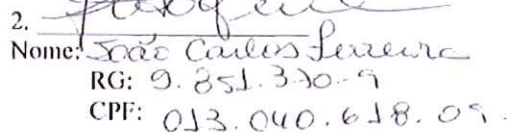 2.
Nome: João Carlos Ferreira
RG: 9.851.370-9
CPF: 013.040.618.09.